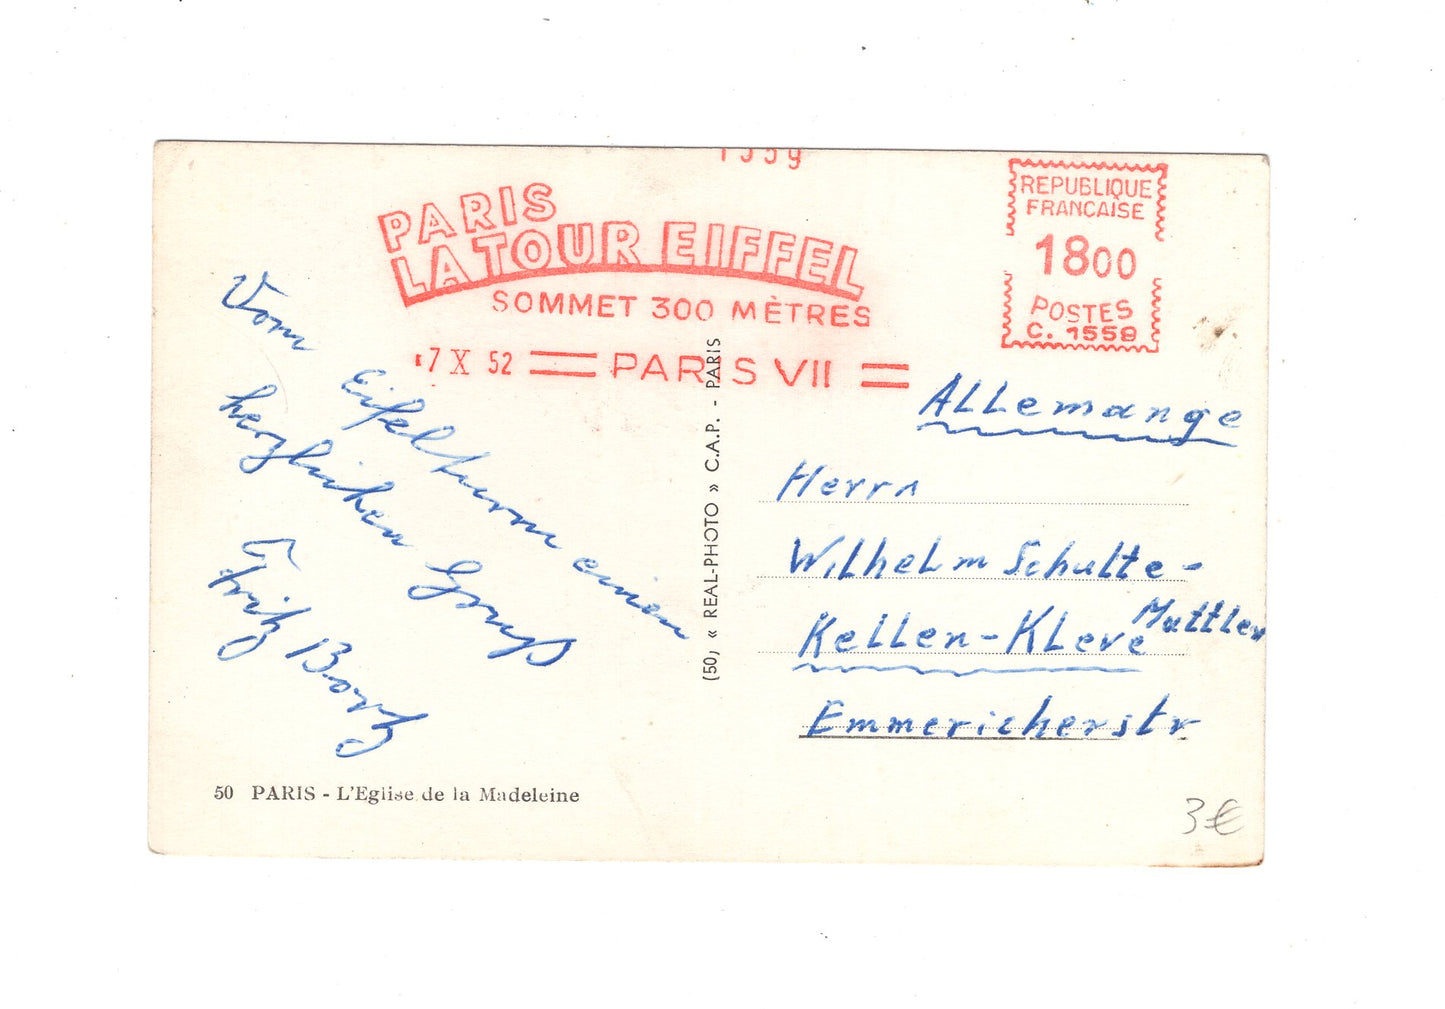 1559
PARIS
LA TOUR EIFFEL
SOMMET 300 MÈTRES
7 X 52 PARIS VII
REPUBLIQUE
FRANCAISE
1800
POSTES
C. 1559
Vom Eifelturm einen
herzlichen Gruß
Fritz Bortz
(50) « REAL-PHOTO » C.A.P. - PARIS
ALLemange
Herrn
Wilhelm Schulte-
Mattler
Kellen-Kleve
Emmericherstr
50 PARIS - L'Eglise de la Madeleine
3€